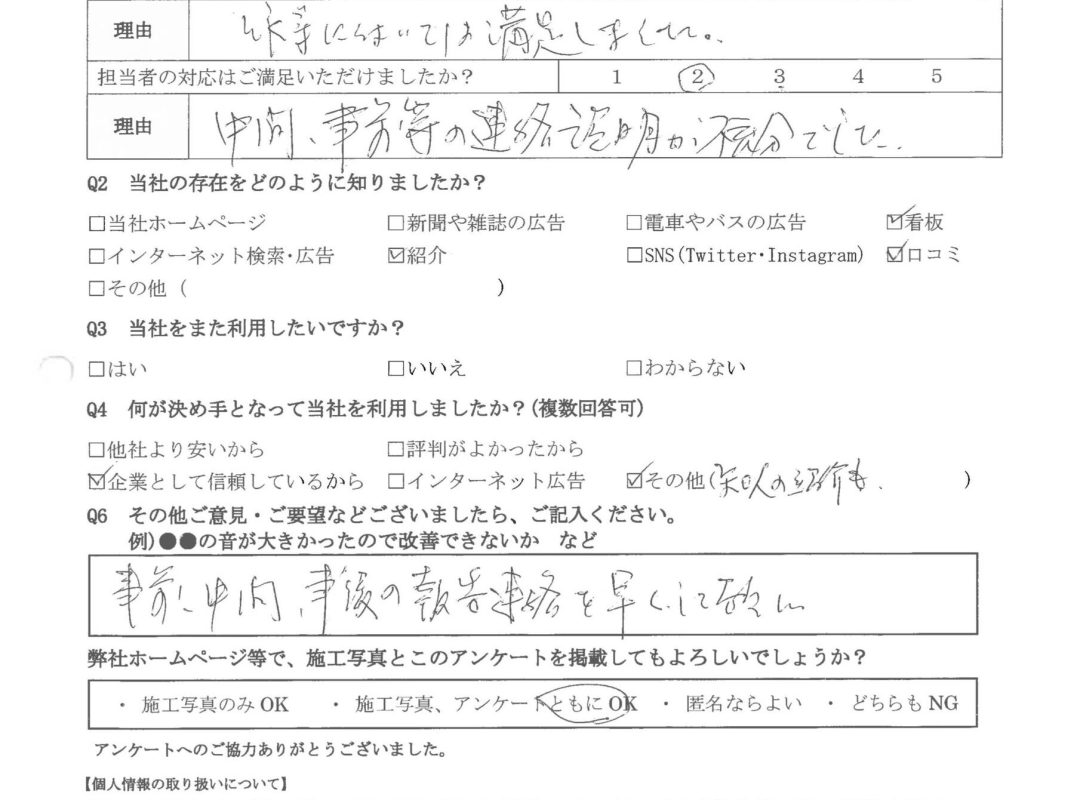 理由 においては満足しました。
担当者の対応はご満足いただけましたか? 1 2 3 4 5
理由 中間、事前等の連絡説明が不充分でした。
Q2 当社の存在をどのように知りましたか?
□当社ホームページ □新聞や雑誌の広告 □電車やバスの広告 ☑看板
□インターネット検索・広告 ☑紹介 □SNS(Twitter・Instagram) ☑口コミ
□その他 ( )
Q3 当社をまた利用したいですか?
□はい □いいえ □わからない
Q4 何が決め手となって当社を利用しましたか?(複数回答可)
□他社より安いから □評判がよかったから
☑企業として信頼しているから □インターネット広告 ☑その他(知人の紹介も. )
Q6 その他ご意見・ご要望などございましたら、ご記入ください。
例)●●の音が大きかったので改善できないか など
事前、中間、事後の報告連絡を早くして欲しい
弊社ホームページ等で、施工写真とこのアンケートを掲載してもよろしいでしょうか?
・ 施工写真のみ OK ・ 施工写真、アンケートともに OK ・ 匿名ならよい ・ どちらも NG
アンケートへのご協力ありがとうございました。
【個人情報の取り扱いについて】